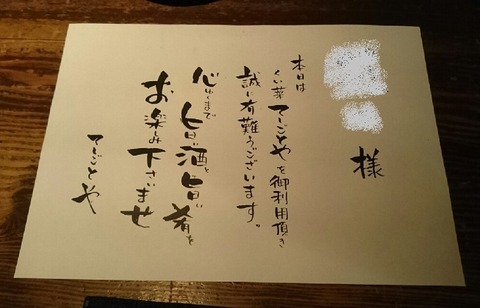 様
本日は
くい芽てしごとやを御利用頂き
誠に有難うございます。
心ゆくまで
旨い酒と旨い肴を
お楽しみ下さいませ
てしごとや